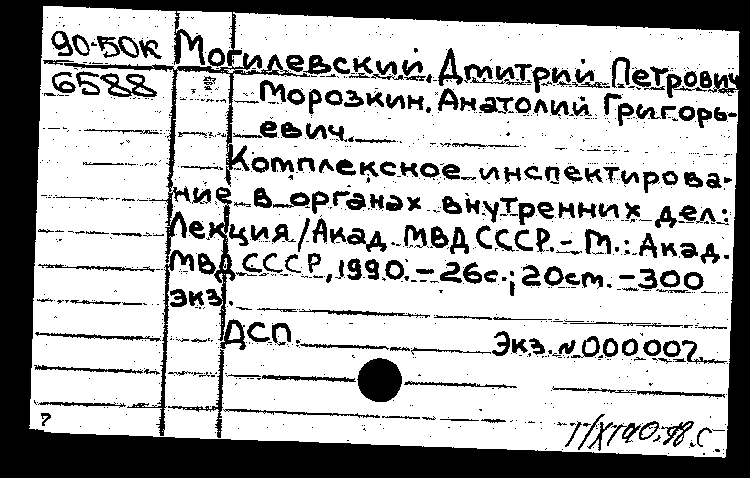 90-50к Могилевский, Дмитрий Петрович
6588 Морозкин, Анатолий Григорь-
евич.
Комплексное инспектирова-
ние в органах внутренних дел:
Лекция/Акад. МВД СССР. - М.: Акад.
МВД СССР, 1990. - 26с.; 20см. - 300
экз.
ДСП. Экз. №000007.
7